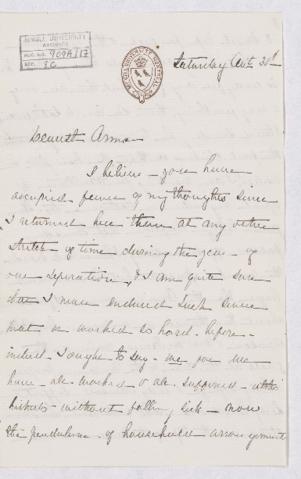 McGILL UNIVERSITY
ARCHIVES
ACC. NO. 909A/17
REF. 36
Saturday Oct 31st
Dearest Anna
I believe you have
occupied fewer of my thoughts since
I returned here than at any other
stretch of time during the year of
our separation, & I am quite sure
I never endured such since
we worked so hard. before
instead I ought to say we
have all worked & all
without falling sick now
the pendulum of household arrangement